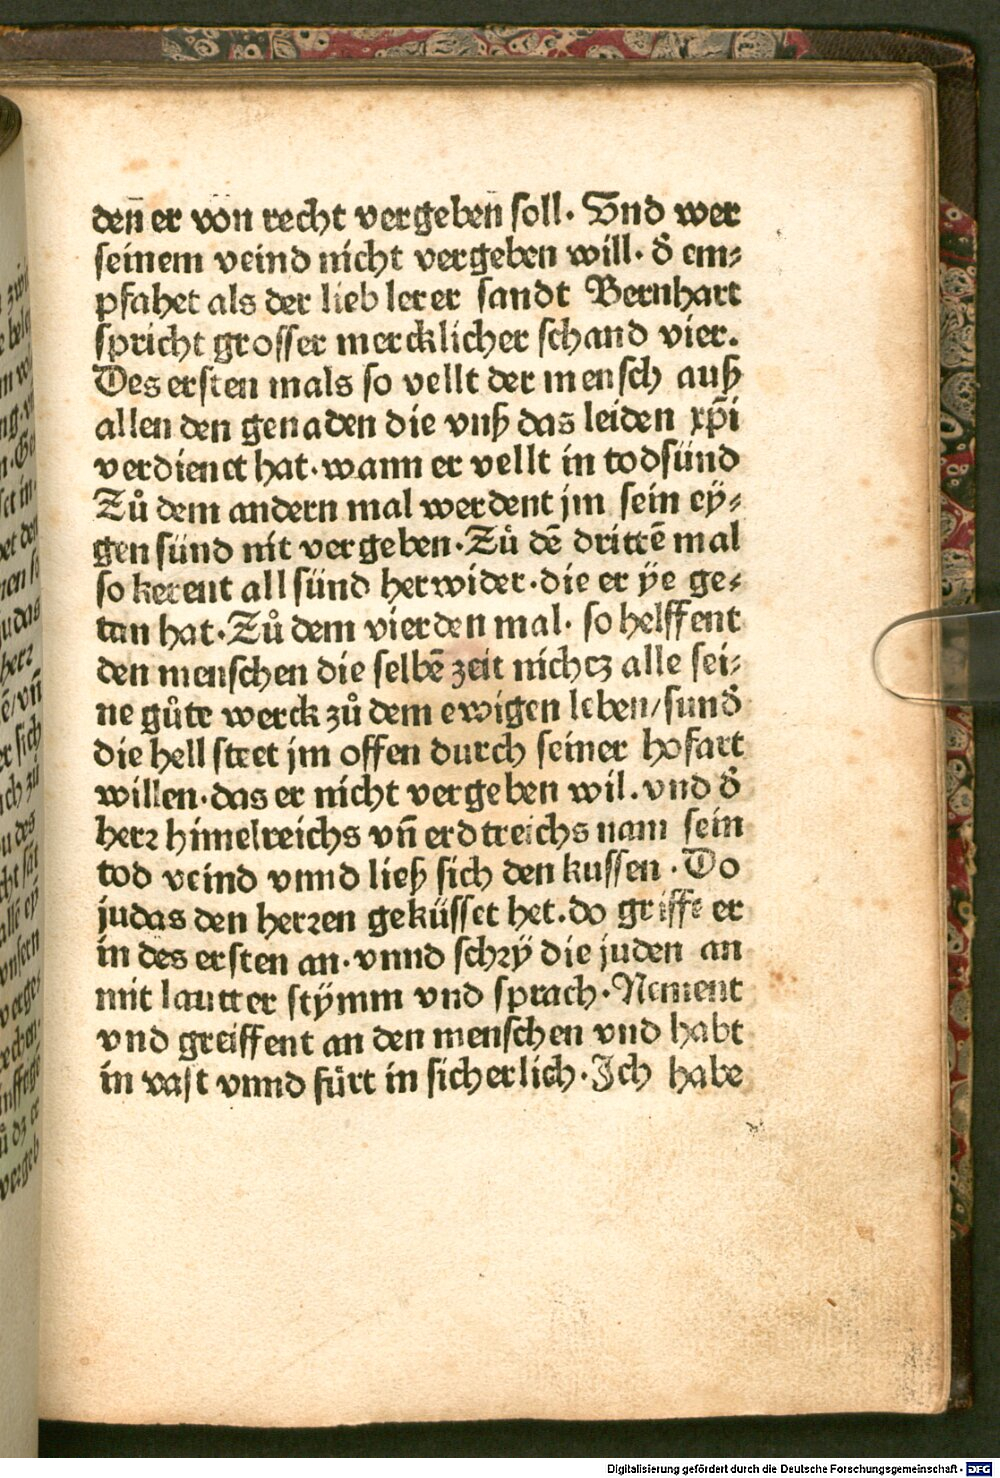 deñ er von recht vergebeñ soll. Vnd wer
seinem veind nicht vergeben will. d̕ em⸗
pfahet als der lieb lerer sandt Bernhart
spricht grosser mercklicher schand vier.
Des ersten mals so vellt der mensch auß
allen den genaden die vnß das leiden xp̄i
verdienet hat. wann er vellt in todsünd
Zů dem andern mal werdent jm sein ey⸗
gen sünd nit vergeben. Zů dē drittē mal
so kerent all sünd herwider. die er ÿe ge⸗
tan hat. Zů dem vierden mal. so helffent
den menschen die selbē zeit nichtz alle sei⸗
ne gůte werck zů dem ewigen leben/ sund̕
die hell steet jm offen durch seiner hofart
willen. das er nicht vergeben wil. vnd d̕
herꝛ himelreichs vñ erdtreichs nam sein
tod veind vnnd ließ sich den kussen. Do
judas den herꝛen geküsset het. do griffe er
in des ersten an. vnnd schꝛÿ die juden an
mit lautter stÿmm vnd sprach. Nement
vnd greiffent an den menschen vnd habt
in vast vnnd fürt in sicherlich. Ich habe
Digitalisierung gefördert durch die Deutsche Forschungsgemeinschaft - DFG